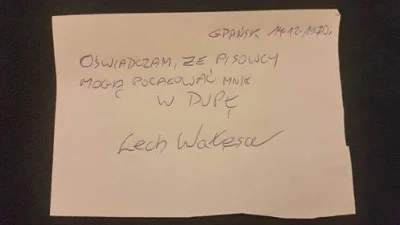 GDAŃSK 14.12.1970r.
OŚWIADCZAM, ŻE PISOWCY
MOGĄ POCAŁOWAĆ MNIE
W DUPĘ
Lech Wałęsa